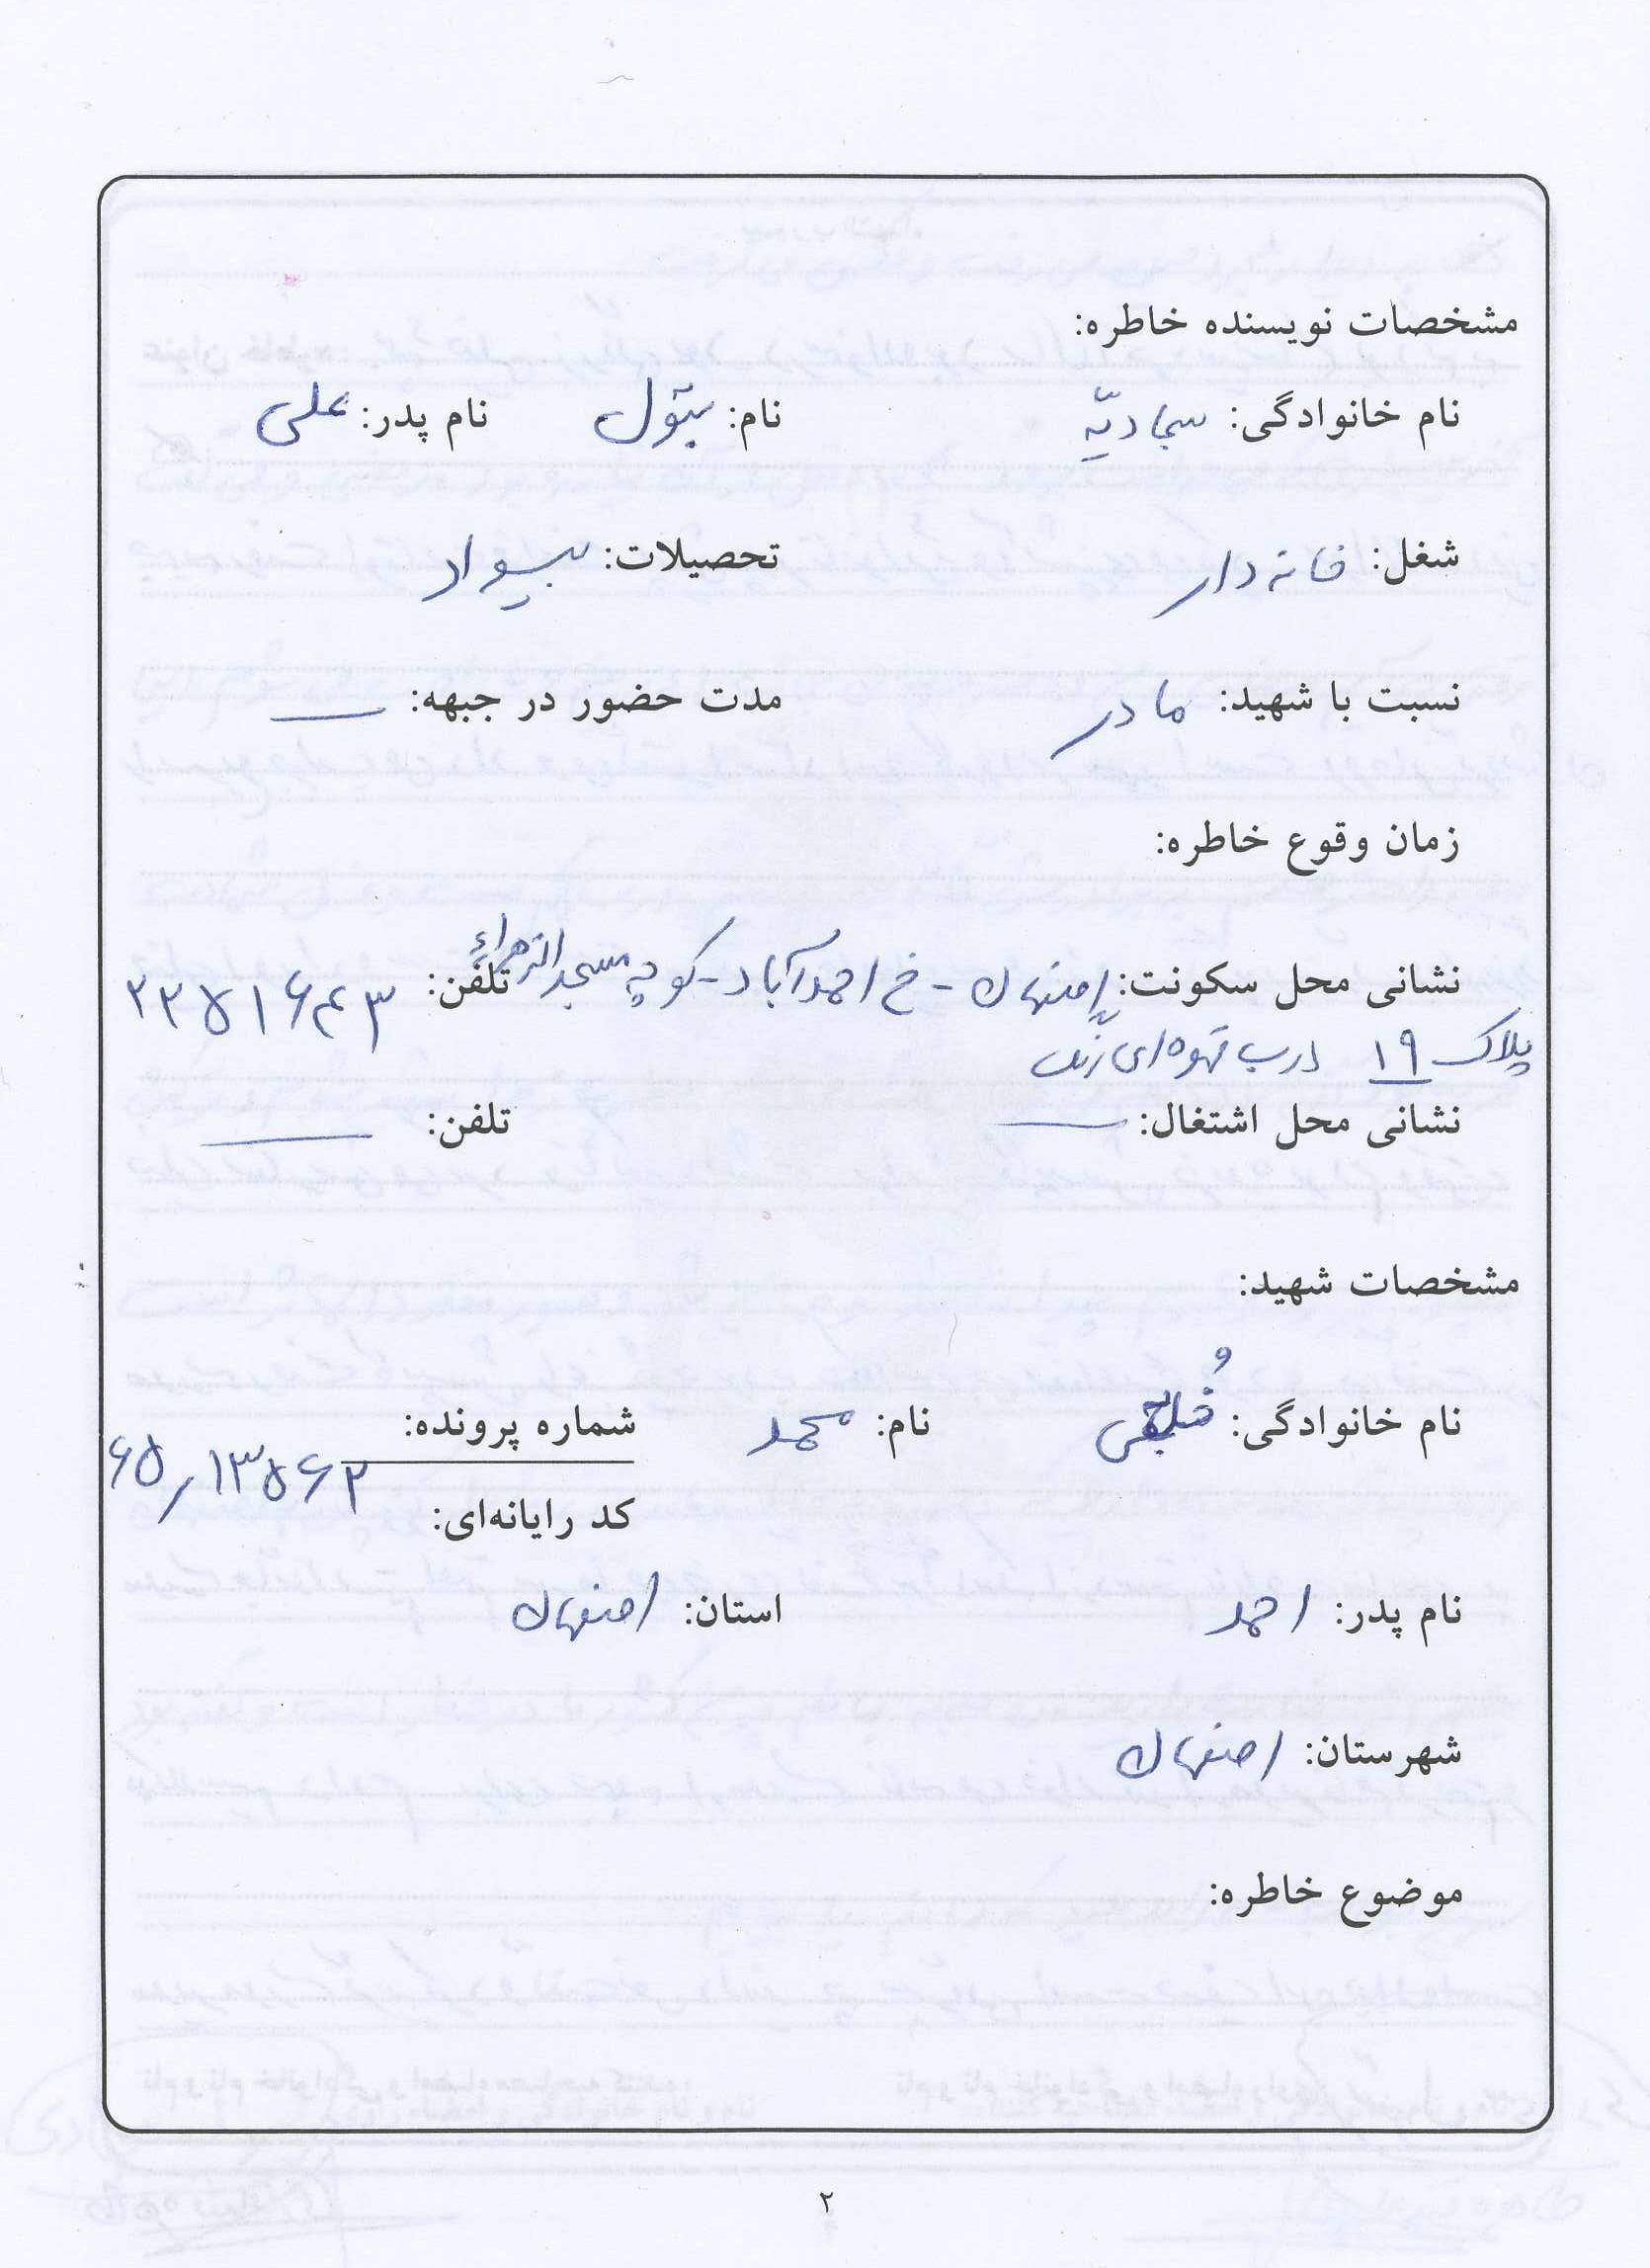 مشخصات نویسنده خاطره:
نام خانوادگی: سجادیّه نام: بتول نام پدر: علی
شغل: خانه دار تحصیلات: بیسواد
نسبت با شهید: مادر مدت حضور در جبهه: ــ
زمان وقوع خاطره:
نشانی محل سکونت: اصفهان - خ احمدآباد - کوچه مسجد الزهراء تلفن: ۲۲۵۱۶۴۳
پلاک ۱۹ درب قهوه ای رنگ
نشانی محل اشتغال: ــ تلفن: ــ
مشخصات شهید:
نام خانوادگی: نام: محمد شماره پرونده:
۶۵/۱۳۵۶۲
کد رایانه‌ای:
نام پدر: احمد استان: اصفهان
شهرستان: اصفهان
موضوع خاطره:
۲